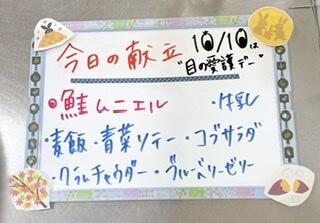 今日の献立 10/10は
"目の愛護デー"
・鮭ムニエル ・牛乳
・麦飯 ・青菜ソテー ・コブサラダ
・クラムチャウダー ・ブルーベリーゼリー